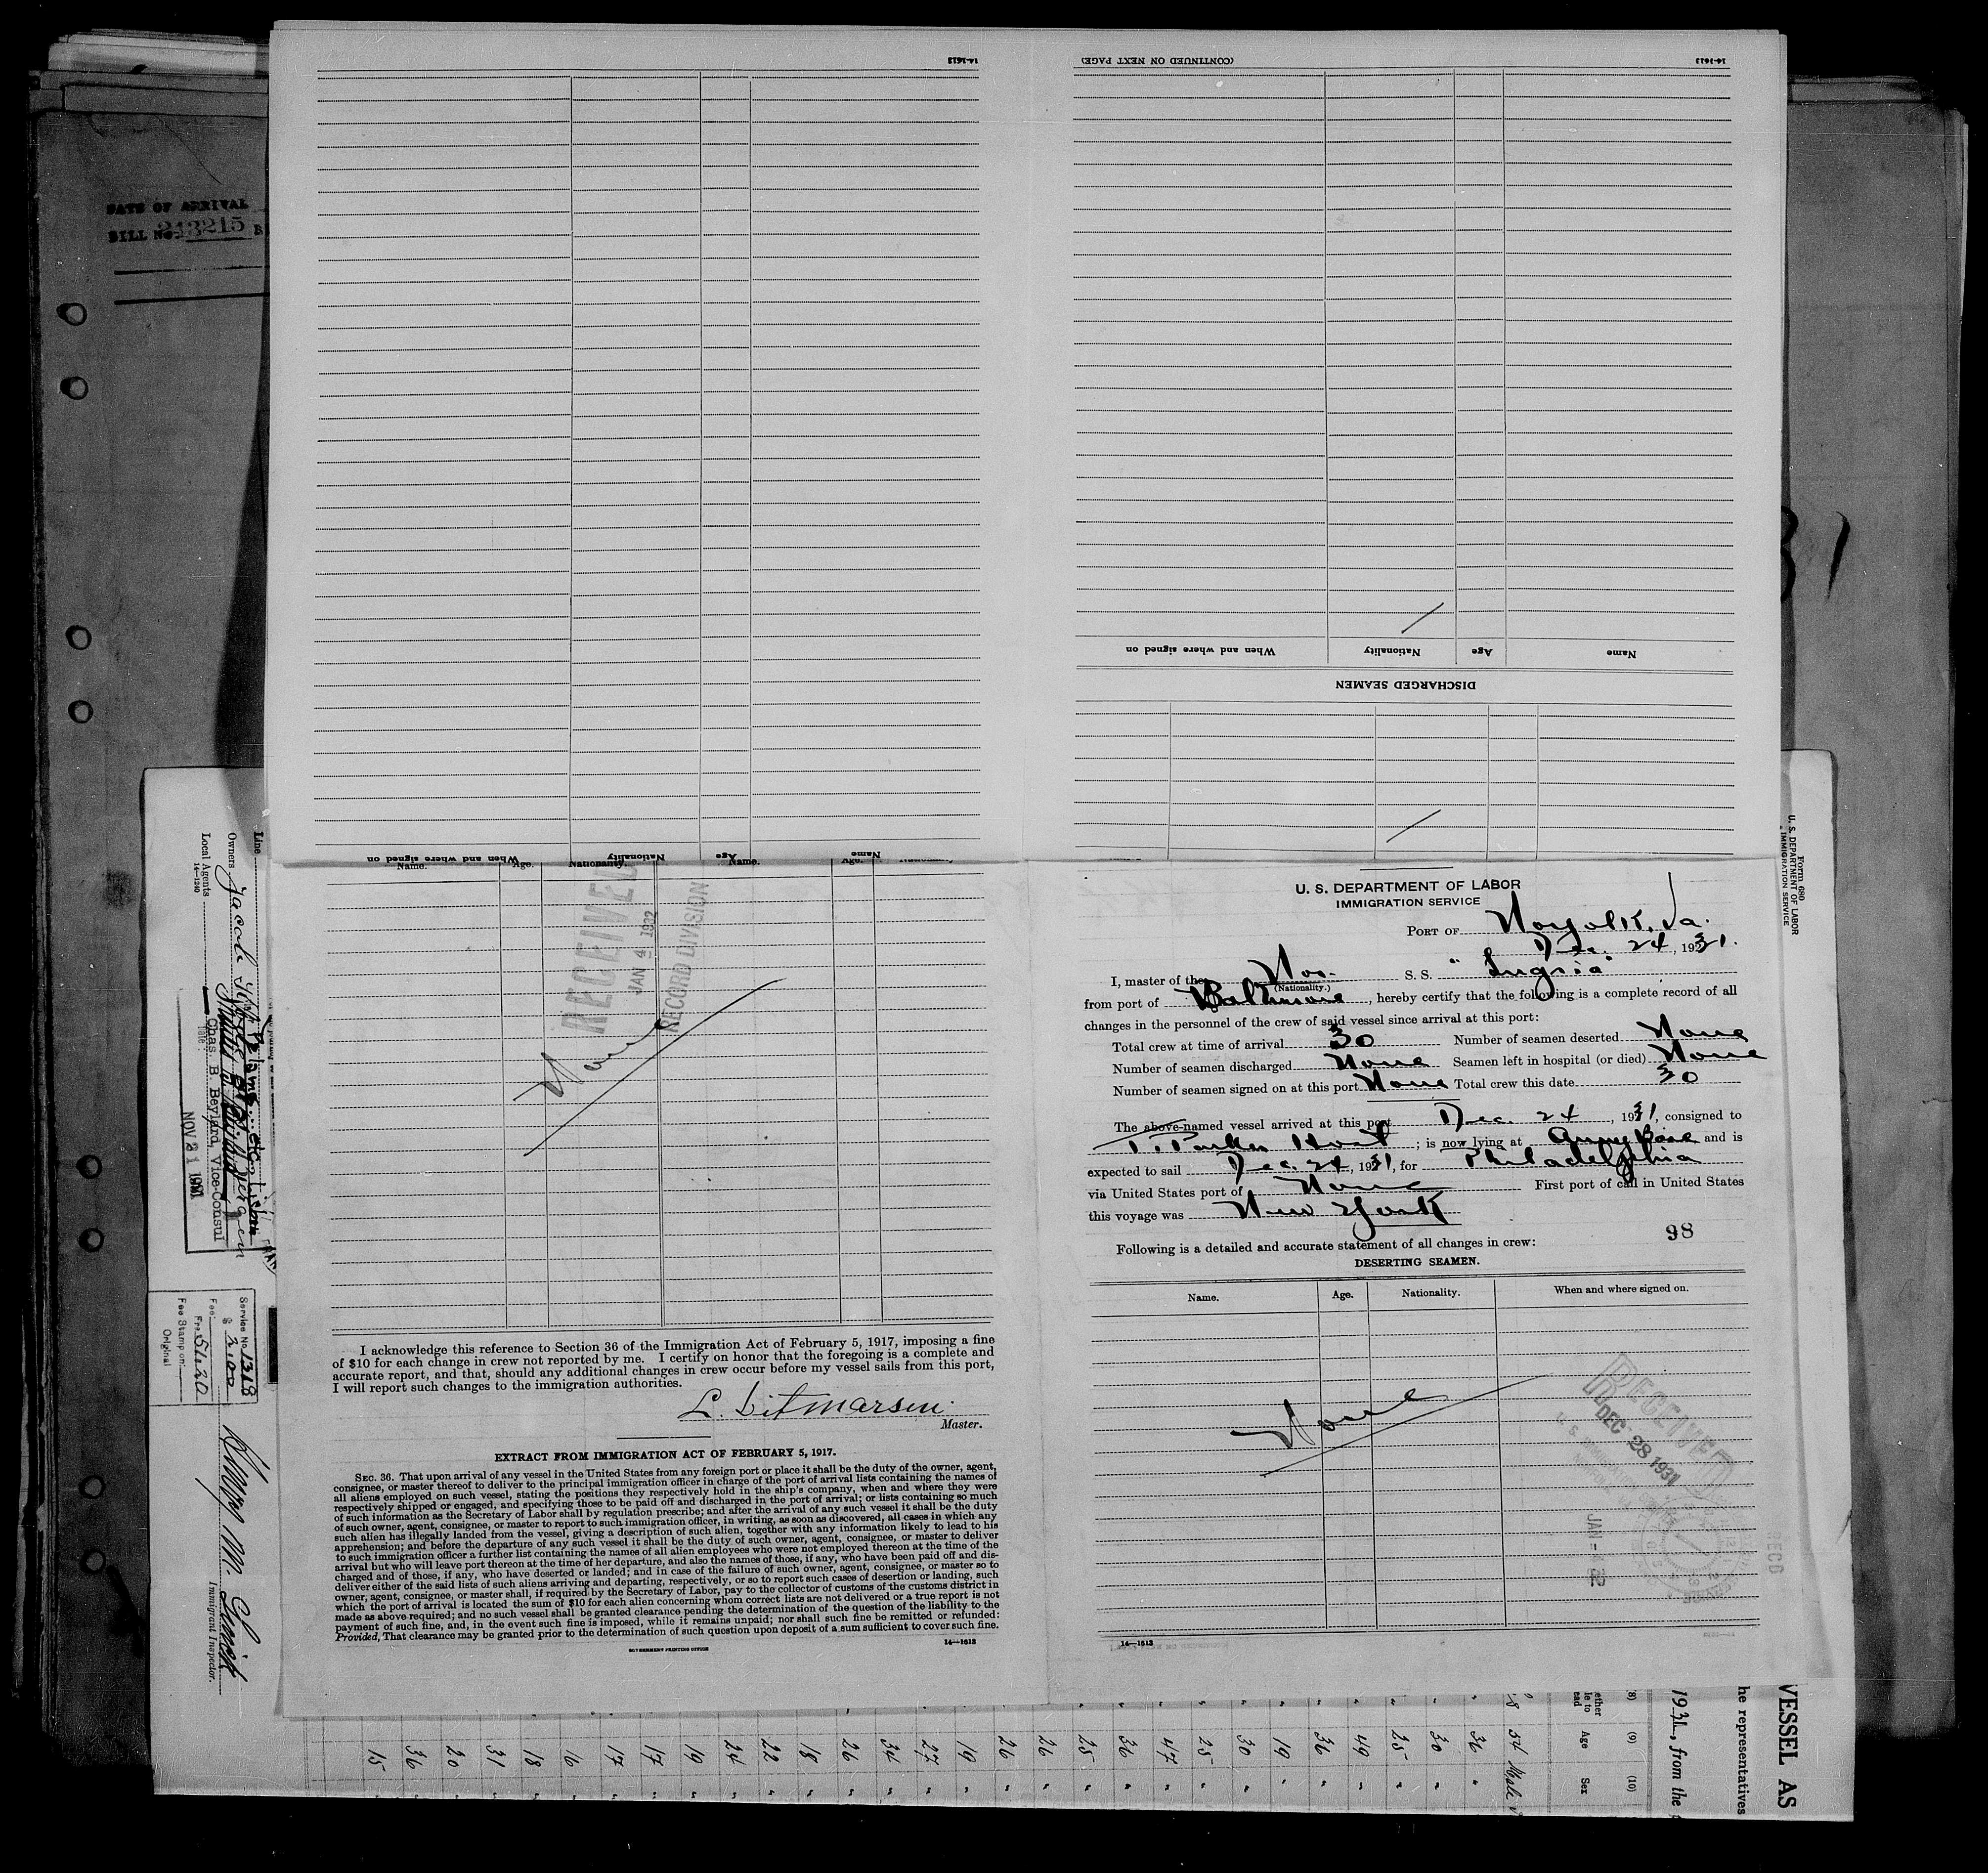 14-1613
(CONTINUED ON NEXT PAGE)
14-1613
DATE OF ARRIVAL
BILL No. 243215
When and where signed on
Nationality
Age
Name
DISCHARGED SEAMEN
When and where signed on
Nationality
Age
Name
Name.
Age.
Nationality.
Name.
Age.
RECEIVED
JAN 4 1932
RECORD DIVISION
None
I acknowledge this reference to Section 36 of the Immigration Act of February 5, 1917, imposing a fine
of $10 for each change in crew not reported by me. I certify on honor that the foregoing is a complete and
accurate report, and that, should any additional changes in crew occur before my vessel sails from this port,
I will report such changes to the immigration authorities.
Master.
EXTRACT FROM IMMIGRATION ACT OF FEBRUARY 5, 1917.
SEC. 36. That upon arrival of any vessel in the United States from any foreign port or place it shall be the duty of the owner, agent,
consignee, or master thereof to deliver to the principal immigration officer in charge of the port of arrival lists containing the names of
all aliens employed on such vessel, stating the positions they respectively hold in the ship's company, when and where they were
respectively shipped or engaged, and specifying those to be paid off and discharged in the port of arrival; or lists containing so much
of such information as the Secretary of Labor shall by regulation prescribe; and after the arrival of any such vessel it shall be the duty
of such owner, agent, consignee, or master to report to such immigration officer, in writing, as soon as discovered, all cases in which any
such alien has illegally landed from the vessel, giving a description of such alien, together with any information likely to lead to his
apprehension; and before the departure of any such vessel it shall be the duty of such owner, agent, consignee, or master to deliver
to such immigration officer a further list containing the names of all alien employees who were not employed thereon at the time of the
arrival but who will leave port thereon at the time of her departure, and also the names of those, if any, who have been paid off and dis-
charged and of those, if any, who have deserted or landed; and in case of the failure of such owner, agent, consignee, or master so to
deliver either of the said lists of such aliens arriving and departing, respectively, or so to report such cases of desertion or landing, such
owner, agent, consignee, or master shall, if required by the Secretary of Labor, pay to the collector of customs of the customs district in
which the port of arrival is located the sum of $10 for each alien concerning whom correct lists are not delivered or a true report is not
made as above required; and no such vessel shall be granted clearance pending the determination of the question of the liability to the
payment of such fine, and, in the event such fine is imposed, while it remains unpaid; nor shall such fine be remitted or refunded:
Provided, That clearance may be granted prior to the determination of such question upon deposit of a sum sufficient to cover such fine.
GOVERNMENT PRINTING OFFICE
14—1613
U. S. DEPARTMENT OF LABOR
IMMIGRATION SERVICE
PORT OF Norfolk, Va.
Dec. 24, 1931.
I, master of the Nor. S. S. "Ingria"
(Nationality.)
from port of Baltimore, hereby certify that the following is a complete record of all
changes in the personnel of the crew of said vessel since arrival at this port:
Total crew at time of arrival 30 Number of seamen deserted None
Number of seamen discharged None Seamen left in hospital (or died) None
Number of seamen signed on at this port None Total crew this date 30
The above-named vessel arrived at this port Dec. 24, 1931, consigned to
T. Parker Host; is now lying at Army Base and is
expected to sail Dec. 24, 1931, for Philadelphia
via United States port of None First port of call in United States
this voyage was New York
98
Following is a detailed and accurate statement of all changes in crew:
DESERTING SEAMEN.
Name.
Age.
Nationality.
When and where signed on.
None
RECEIVED
DEC 28 1931
14—1613
Line
Owners
Local Agents
14-1240
Chas. B. Beylard, Vice-Consul
NOV 21 1931
Service No. 1318
Fee
Fee Stamp on:
Original
Immigrant Inspector.
Form 680
U. S. DEPARTMENT OF LABOR
IMMIGRATION SERVICE
VESSEL AS
he representatives
1931, from the
(8)
(9)
(10)
Age
Sex
54 Male
36
30
25
49
36
19
30
25
47
36
25
26
26
19
27
34
26
18
22
24
19
17
17
16
18
31
20
36
15